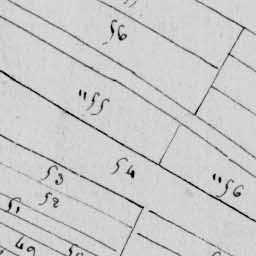 56
"55
54
53
"56
52
51
49
50